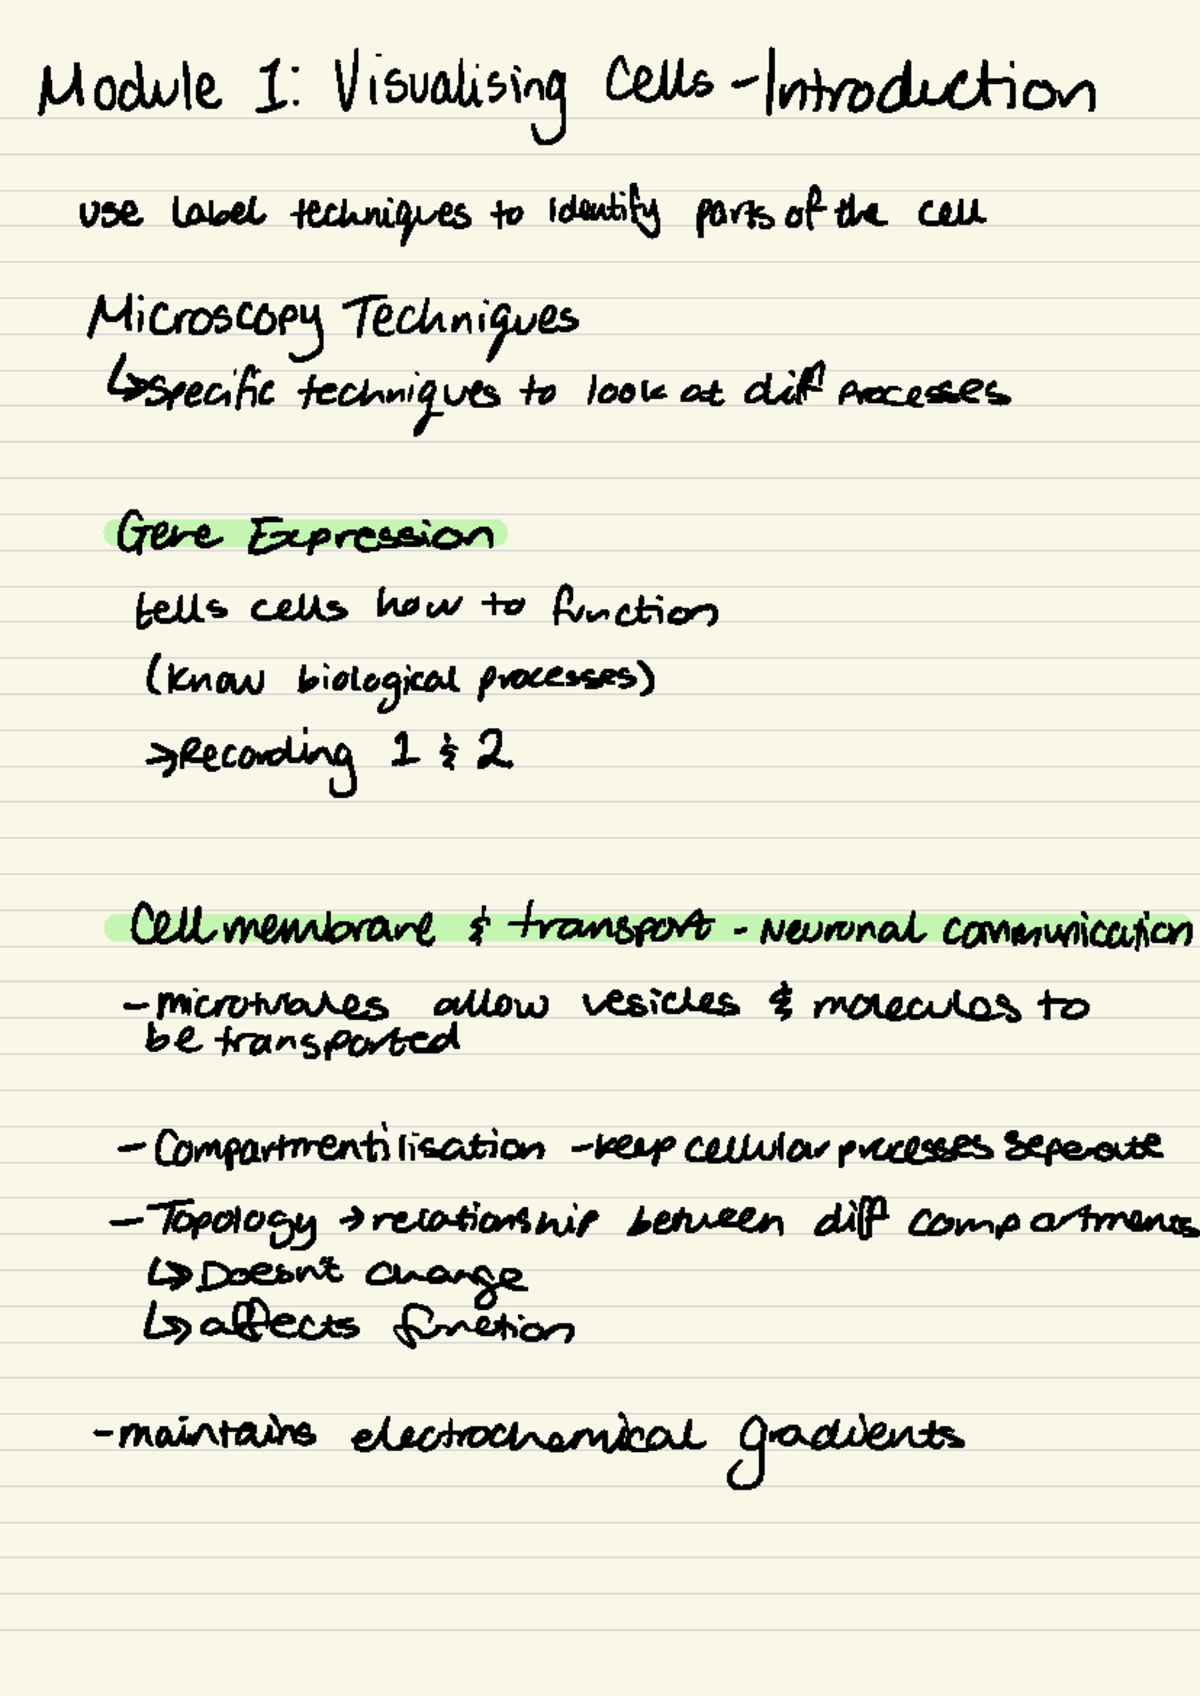 Module 1: Visualising Cells - Introduction
use label techniques to identify parts of the cell
Microscopy Techniques
↳ specific techniques to look at diff processes
Gene Expression
tells cells how to function
(know biological processes)
→ Recording 1 & 2
Cell membrane & transport - Neuronal communication
- microtubules allow vesicles & molecules to
be transported
- Compartmentilisation - keep cellular processes seperate
- Topology → relationship between diff compartments
↳ Doesn't change
↳ affects function
- maintains electrochemical gradients